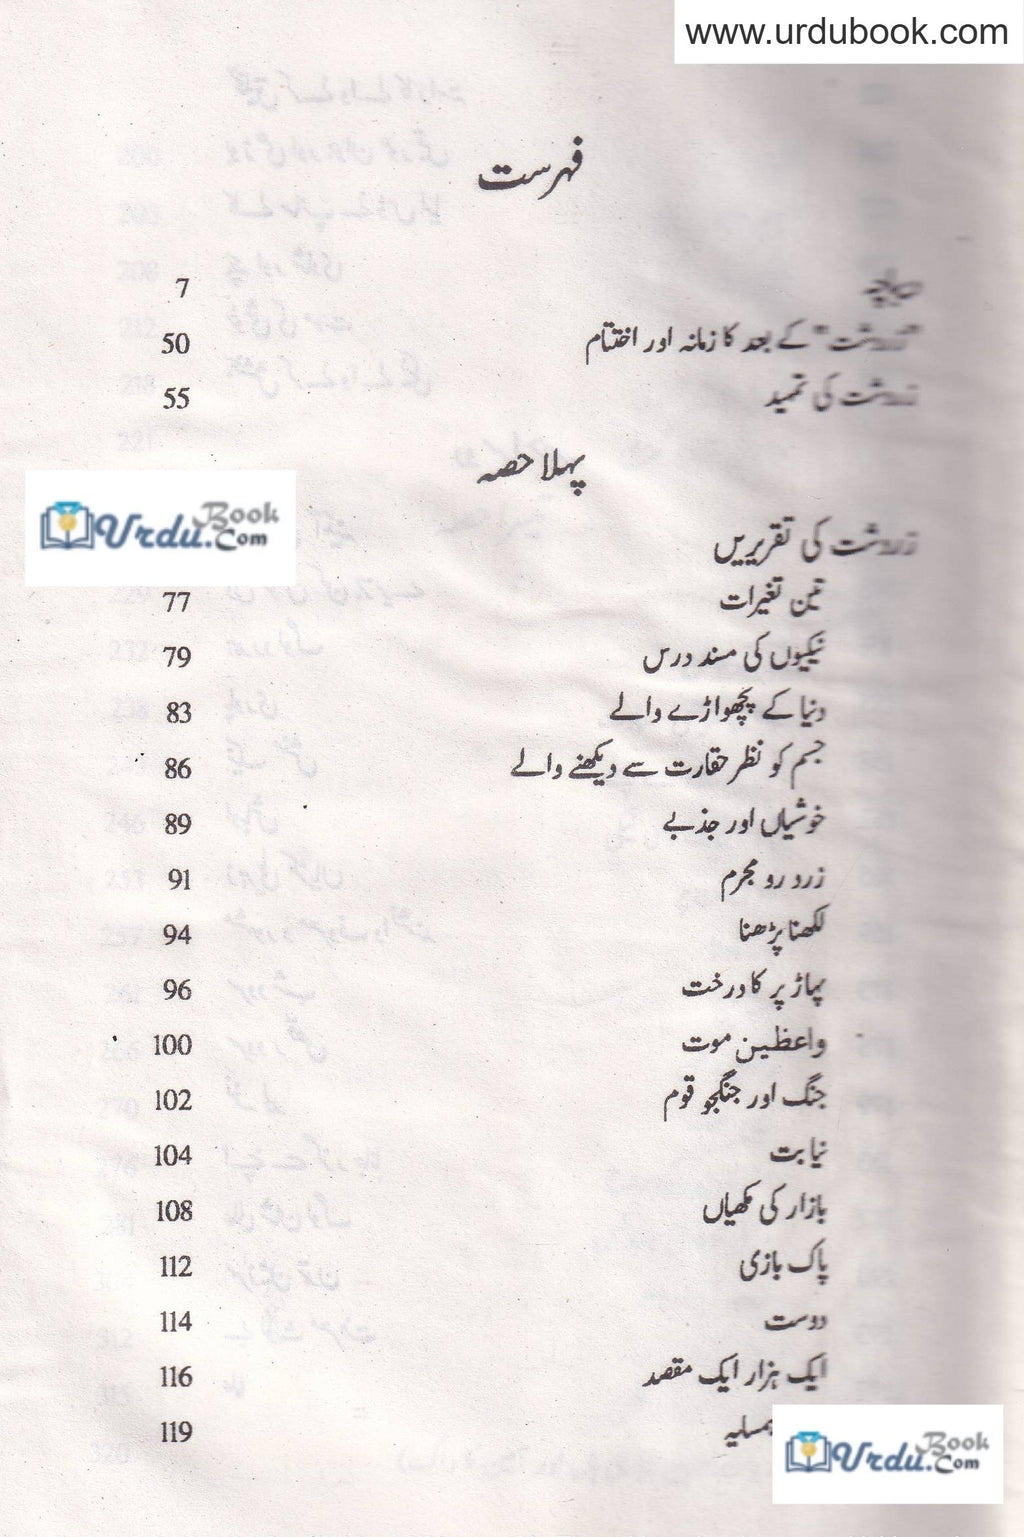 www.urdubook.com
فہرست
دیباچہ 7
"زردشت" کے بعد کا زمانہ اور اختتام 50
زردشت کی تمہید 55
پہلا حصہ
Urdu Book .Com
زردشت کی تقریریں
تین تغیرات 77
نیکیوں کی مسند درس 79
دنیا کے پچھواڑے والے 83
جسم کو نظر حقارت سے دیکھنے والے 86
خوشیاں اور جذبے 89
زرد رو مجرم 91
لکھنا پڑھنا 94
پہاڑ پر کا درخت 96
واعظین موت 100
جنگ اور جنگجو قوم 102
نیا بت 104
بازار کی مکھیاں 108
پاک بازی 112
دوست 114
ایک ہزار ایک مقصد 116
ہمسایہ 119
Urdu Book .Com